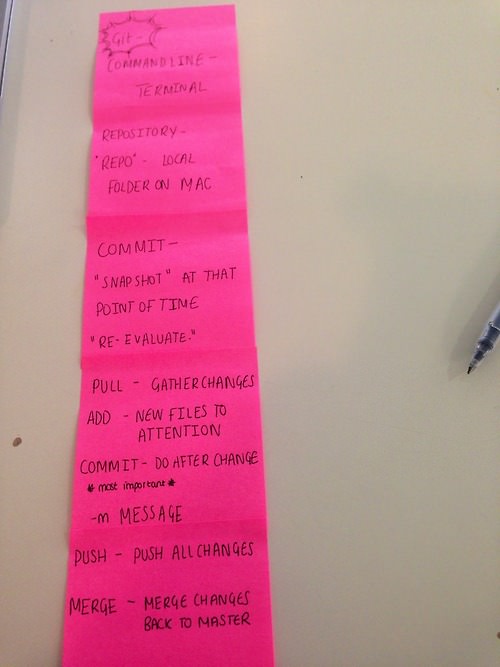 GIT -
COMMANDLINE -
TERMINAL
REPOSITORY -
"REPO" - LOCAL
FOLDER ON MAC
COMMIT -
"SNAPSHOT" AT THAT
POINT OF TIME
"RE-EVALUATE."
PULL - GATHER CHANGES
ADD - NEW FILES TO
ATTENTION
COMMIT - DO AFTER CHANGE
* most important *
-m MESSAGE
PUSH - PUSH ALL CHANGES
MERGE - MERGE CHANGES
BACK TO MASTER